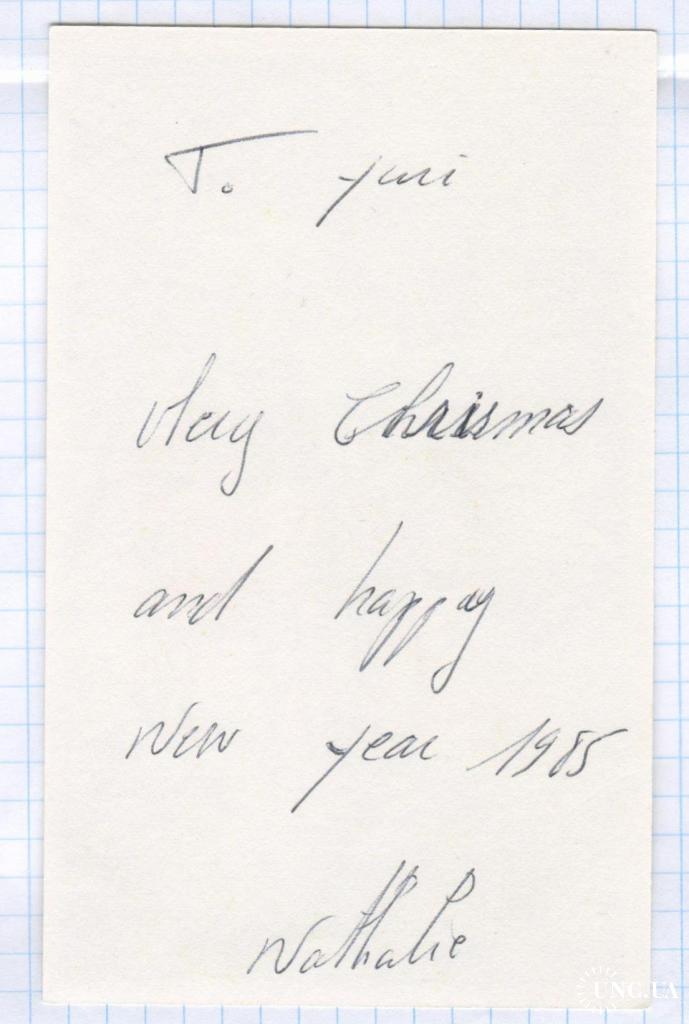 To yuri
Mery Chrismas
and happy
New year 1985
Nathalie
UNC.UA